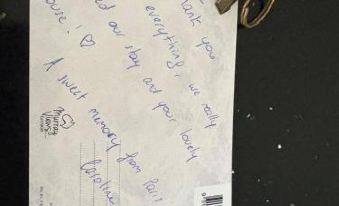 Thank you
everything, we really
ed our stay and your lovely
ouse! ♡
A sweet memory from Paris
Caroline
Murray
Views